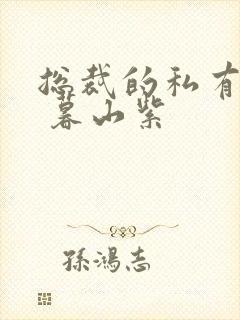 总裁的私有
暮山紫
孙鸿志